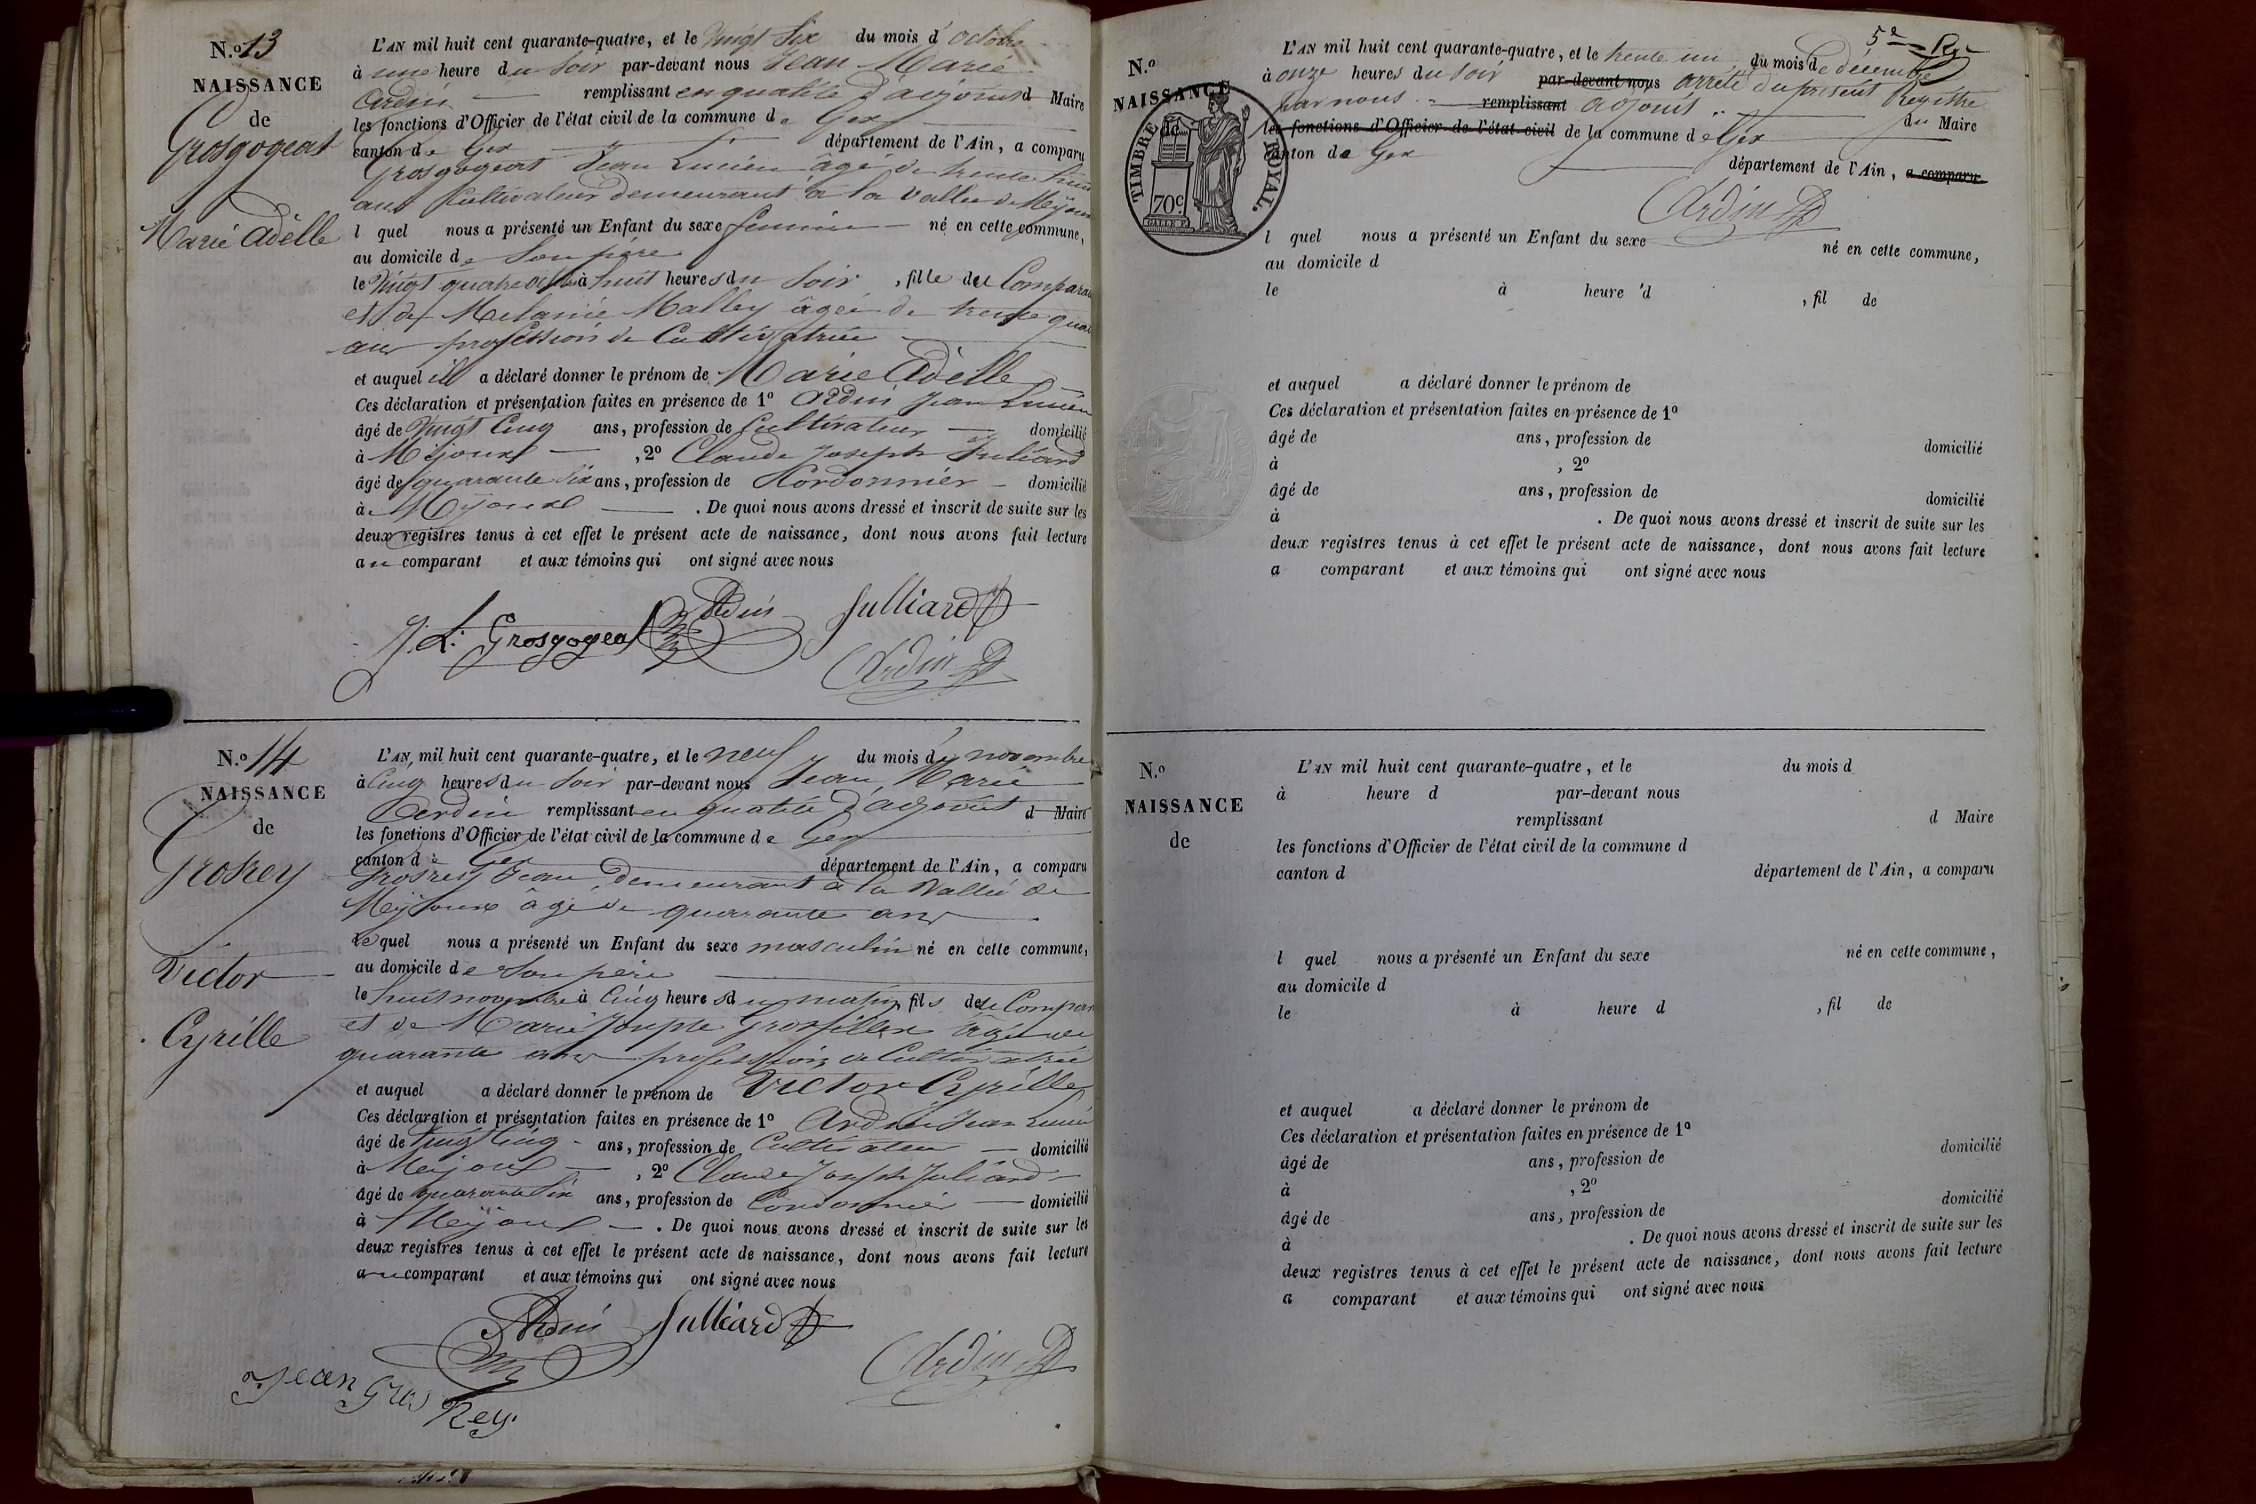 N.o 13
NAISSANCE
de
Grosgogeat
Marie Adèlle
L'AN mil huit cent quarante-quatre, et le Vingt Six du mois d'octobre
à une heure du Soir par-devant nous Jean Marie
Ardin remplissant en qualité d'adjoint d Maire
les fonctions d'Officier de l'état civil de la commune de Gex
canton de Gex département de l'Ain, a comparu
Grosgogeat Jean Lucien âgé de trente
ans Cultivateur demeurant à la vallée de Mijoux
l quel nous a présenté un Enfant du sexe féminin né en cette commune,
au domicile de Son père
le Vingt quatre à huit heures du Soir, fille du Comparant
et de Melanie Malley âgée de trente quatre
ans profession de Cultivatrice
et auquel il a déclaré donner le prénom de Marie Adèlle
Ces déclaration et présentation faites en présence de 1o Ardin Jean Lucien
âgé de Vingt Cinq ans, profession de Cultivateur domicilié
à Mijoux, 2o Claude Joseph Juliard
âgé de quarante Six ans, profession de Cordonnier domicilié
à Mijoux. De quoi nous avons dressé et inscrit de suite sur les
deux registres tenus à cet effet le présent acte de naissance, dont nous avons fait lecture
au comparant et aux témoins qui ont signé avec nous
J. L. Grosgogeat Ardin Julliard
Ardin
N.o 14
NAISSANCE
de
Grosrey
Victor
Cyrille
L'AN mil huit cent quarante-quatre, et le neuf du mois de novembre
à Cinq heures du Soir par-devant nous Jean Marie
Ardin remplissant en qualité d'adjoint d Maire
les fonctions d'Officier de l'état civil de la commune de Gex
canton de Gex département de l'Ain, a comparu
Grosrey Jean, demeurant à la Vallée de
Mijoux âgé de quarante ans
Le quel nous a présenté un Enfant du sexe masculin né en cette commune,
au domicile de Son père
le huit novembre à Cinq heures du matin, fils du Comparant
et de Marie Josephte Grosfillex âgée de
quarante ans profession de Cultivatrice
et auquel a déclaré donner le prénom de Victor Cyrille
Ces déclaration et présentation faites en présence de 1o Ardin Jean Lucien
âgé de Vingt Cinq ans, profession de Cultivateur domicilié
à Mijoux, 2o Claude Joseph Juliard
âgé de quarante Six ans, profession de Cordonnier domicilié
à Mijoux. De quoi nous avons dressé et inscrit de suite sur les
deux registres tenus à cet effet le présent acte de naissance, dont nous avons fait lecture
au comparant et aux témoins qui ont signé avec nous
Ardin Julliard
Jean Gros Rey. Ardin
5e
N.o
NAISSANCE
de
TIMBRE ROYAL.
70c
L'AN mil huit cent quarante-quatre, et le trente un du mois de décembre
à onze heures du Soir par-devant nous arrêté du présent Registre
par nous remplissant adjoint du Maire
les fonctions d'Officier de l'état civil de la commune de Gex
canton de Gex département de l'Ain, a comparu
Ardin
l quel nous a présenté un Enfant du sexe né en cette commune,
au domicile d
le à heure d , fil de
et auquel a déclaré donner le prénom de
Ces déclaration et présentation faites en présence de 1o
âgé de ans, profession de domicilié
à , 2o
âgé de ans, profession de domicilié
à . De quoi nous avons dressé et inscrit de suite sur les
deux registres tenus à cet effet le présent acte de naissance, dont nous avons fait lecture
a comparant et aux témoins qui ont signé avec nous
N.o
NAISSANCE
de
L'AN mil huit cent quarante-quatre, et le du mois d
à heure d par-devant nous
remplissant d Maire
les fonctions d'Officier de l'état civil de la commune d
canton d département de l'Ain, a comparu
l quel nous a présenté un Enfant du sexe né en cette commune,
au domicile d
le à heure d , fil de
et auquel a déclaré donner le prénom de
Ces déclaration et présentation faites en présence de 1o
âgé de ans, profession de domicilié
à , 2o
âgé de ans, profession de domicilié
à . De quoi nous avons dressé et inscrit de suite sur les
deux registres tenus à cet effet le présent acte de naissance, dont nous avons fait lecture
a comparant et aux témoins qui ont signé avec nous